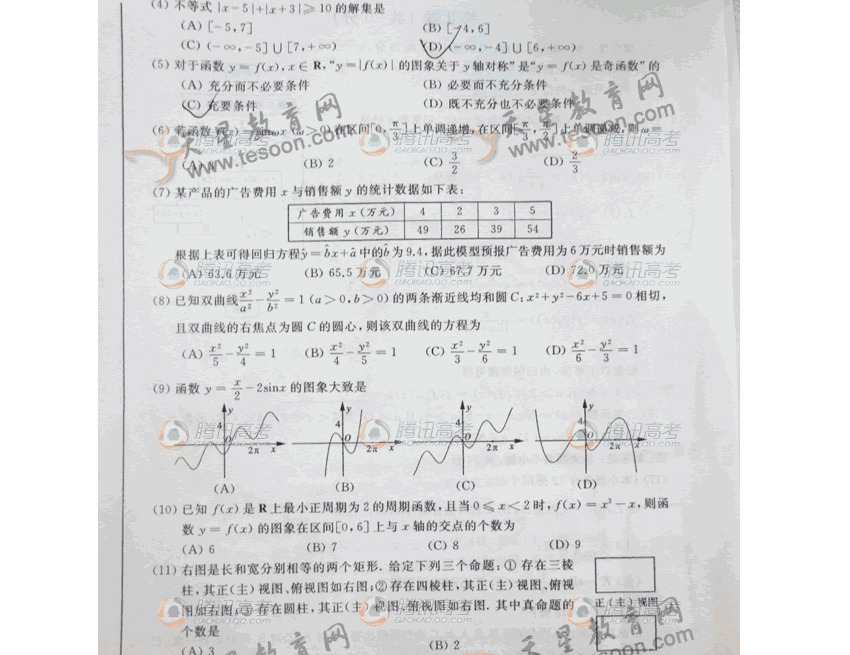 (4) 不等式 |x-5|+|x+3|≥10 的解集是
(A) [-5,7] (B) [-4,6]
(C) (-∞,-5]∪[7,+∞) (D) (-∞,-4]∪[6,+∞)
(5) 对于函数 y=f(x),x∈R,“y=|f(x)| 的图象关于 y 轴对称”是“y=f(x) 是奇函数”的
(A) 充分而不必要条件 (B) 必要而不充分条件
(C) 充要条件 (D) 既不充分也不必要条件
(6) 若函数 f(x)=sinωx (ω>0) 在区间[0,π/3]上单调递增,在区间[π/3,π/2]上单调递减,则ω=
(A) (B) 2 (C) 3/2 (D) 2/3
(7) 某产品的广告费用 x 与销售额 y 的统计数据如下表:
广告费用 x (万元) 4 2 3 5
销售额 y (万元) 49 26 39 54
根据上表可得回归方程ŷ=b̂x+â中的b̂为 9.4,据此模型预报广告费用为 6 万元时销售额为
(A) 63.6 万元 (B) 65.5 万元 (C) 67.7 万元 (D) 72.0 万元
(8) 已知双曲线 x²/a² - y²/b² = 1 (a>0,b>0) 的两条渐近线均和圆 C:x²+y²-6x+5=0 相切,
且双曲线的右焦点为圆 C 的圆心,则该双曲线的方程为
(A) x²/5 - y²/4 = 1 (B) x²/4 - y²/5 = 1 (C) x²/3 - y²/6 = 1 (D) x²/6 - y²/3 = 1
(9) 函数 y = x/2 - 2sinx 的图象大致是
y 4 O 2π x y 4 O 2π x y 4 O 2π x y 4 O 2π x
(A) (B) (C) (D)
(10) 已知 f(x) 是 R 上最小正周期为 2 的周期函数,且当 0≤x<2 时,f(x)=x³-x,则函
数 y=f(x) 的图象在区间[0,6]上与 x 轴的交点的个数为
(A) 6 (B) 7 (C) 8 (D) 9
(11) 右图是长和宽分别相等的两个矩形.给定下列三个命题:① 存在三棱
柱,其正(主)视图、俯视图如右图;② 存在四棱柱,其正(主)视图、俯视
图如右图;③ 存在圆柱,其正(主)视图、俯视图如右图.其中真命题的
正(主)视图
个数是
(A) 3 (B) 2
天星教育网
www.tesoon.com
天星教育网
www.tesoon.com
天星教育网
tesoon.com
腾讯高考
GAOKAO.QQ.COM